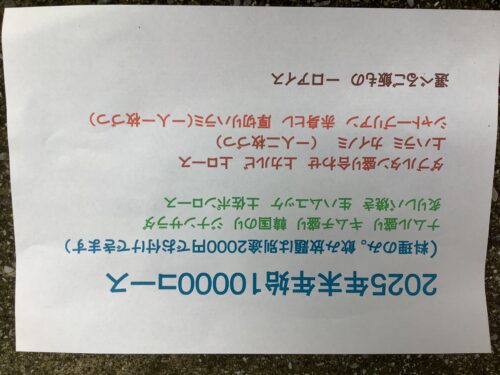 2025年末年始10000コース
(料理のみ。飲み放題は別途2000円でお付けできます)
ナムル盛り キムチ盛り 韓国のり ジナンサラダ
炙りレバ焼き 生ハムユッケ 土佐ポンロース
ダブルタン盛り合わせ 上カルビ 上ロース
上ハラミ カイノミ (一人二枚づつ)
シャトーブリアン 赤身ヒレ 厚切りハラミ(一人一枚づつ)
選べるご飯もの 一口アイス